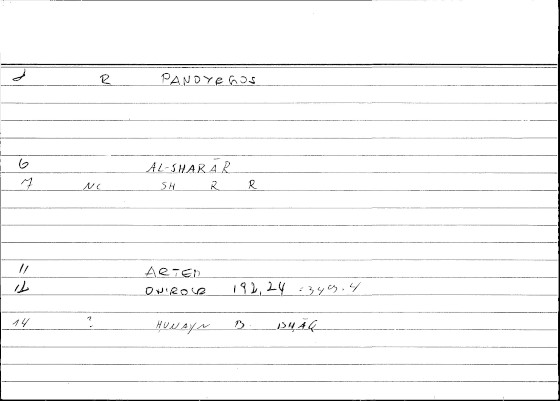 R PANOYRGOS
6 AL-SHARĀR
7 NC SH R R
11 ARTEM
12 ONIROCR 192,24 = 349.4
14 ? HUNAYN B. ISḤĀQ